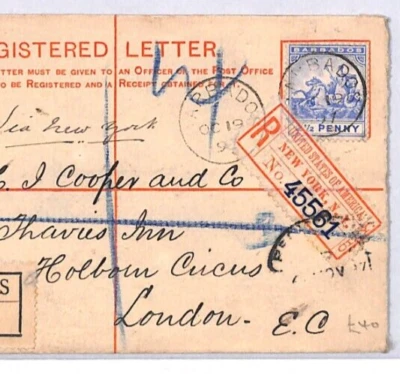 GISTERED LETTER
LETTER MUST BE GIVEN TO AN OFFICER OF THE POST OFFICE
TO BE REGISTERED AND A RECEIPT OBTAINED
Via New York
BARBADOS
OC 19
BARBADOS
½ PENNY
R
UNITED STATES OF AMERICA
NEW YORK, N.Y.
No. 45561
C. J. Cooper and Co
Thavies Inn
Holborn Circus
London.
E.C
£40
S